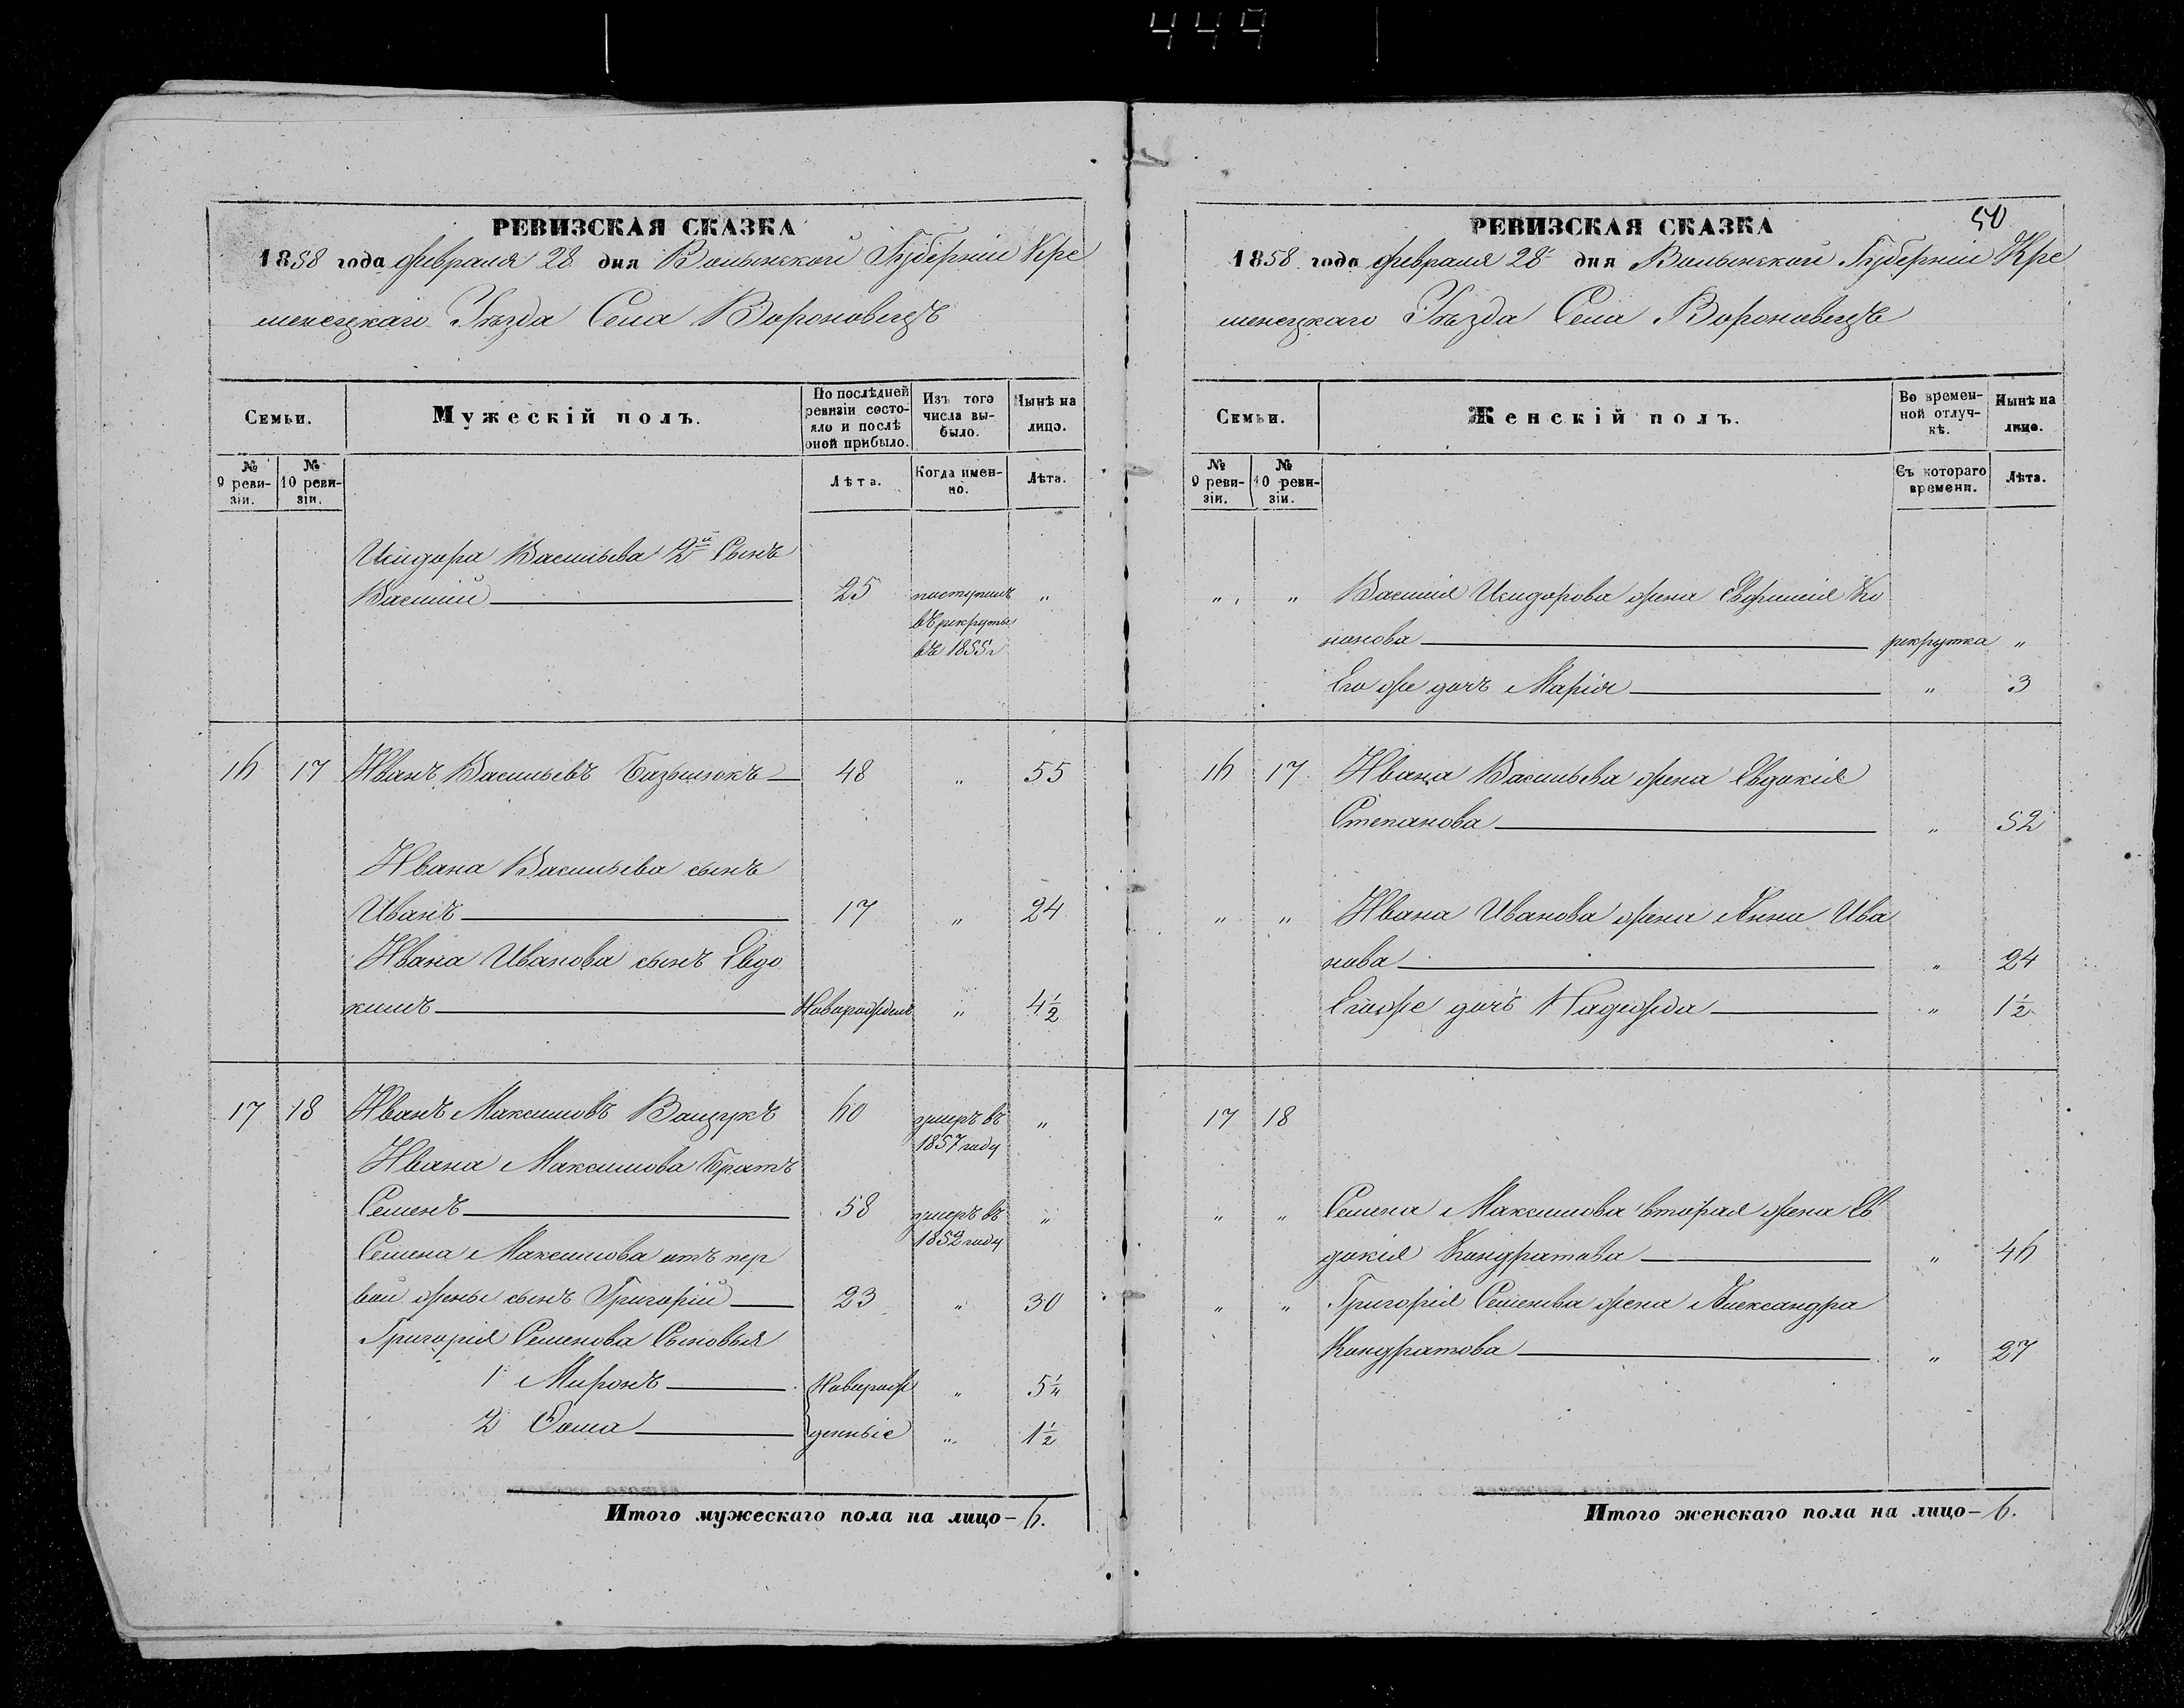 444
РЕВИЗСКАЯ СКАЗКА
1858 года февраля 28 дня Волынской Губерніи Кре
менецкаго Уѣзда Села Вороновецъ
Семьи.
Мужескій полъ.
По послѣдней ревизіи состояло и послѣ оной прибыло.
Изъ того числа выбыло.
Нынѣ на лицо.
№ 9 ревизіи.
№ 10 ревизіи.
Лѣта.
Когда именно.
Лѣта.
Исидора Васильева 2й Сынъ
Василій 25 поступилъ "
въ рекруты
въ 1855 г
16 17 Иванъ Васильевъ 48 " 55
Ивана Васильева сынъ
Иванъ 17 " 24
Ивана Иванова сынъ Евдо
кимъ Новорожден " 4 1/2
17 18 Иванъ Максимовъ Ващукъ 60 умеръ въ "
1857 году
Ивана Максимова братъ
Семенъ 58 умеръ въ "
1852 году
Семена Максимова отъ пер
вой жены сынъ Григорій 23 " 30
Григорія Семенова Сыновья
1 Миронъ Новорож " 5 1/4
2 Фома денные " 1 1/2
Итого мужескаго пола на лицо - 6.
50
РЕВИЗСКАЯ СКАЗКА
1858 года февраля 28 дня Волынской Губерніи Кре
менецкаго Уѣзда Села Вороновецъ
Семьи.
Женскій полъ.
Во временной отлучкѣ.
Нынѣ на лицо.
№ 9 ревизіи.
№ 10 ревизіи.
Съ котораго времени.
Лѣта.
" " Василія Исидорова жена Евфимія Ко
нонова рекрутка "
Его же дочь Марія " 3
16 17 Ивана Васильева жена Евдокія
Степанова " 52
" " Ивана Иванова жена Анна Ива
нова " 24
Его же дочь Надежда " 1 1/2
17 18
" " Семена Максимова вторая жена Ев
докія Кондратова " 46
" " Григорія Семенова жена Александра
Кондратова " 27
Итого женскаго пола на лицо - 6.